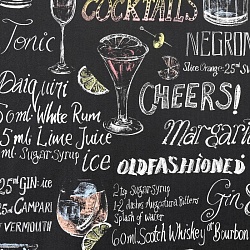 COCKTAILS
Tonic
NEGRON
Slice Orange: 25 St
Daiquiri
CHEERS!
60ml White Rum
5ml Lime Juice
ml Sugar Syrup
ice
Margari
OLDFASHIONED
25ml GIN: ice
25ml CAMPARI
VERMOUTH
2 tsp Sugar Syrup
1-2 dashes Angustura Bitters
Splash of water
60ml Scotch Whiskey or Bourbon
Gin